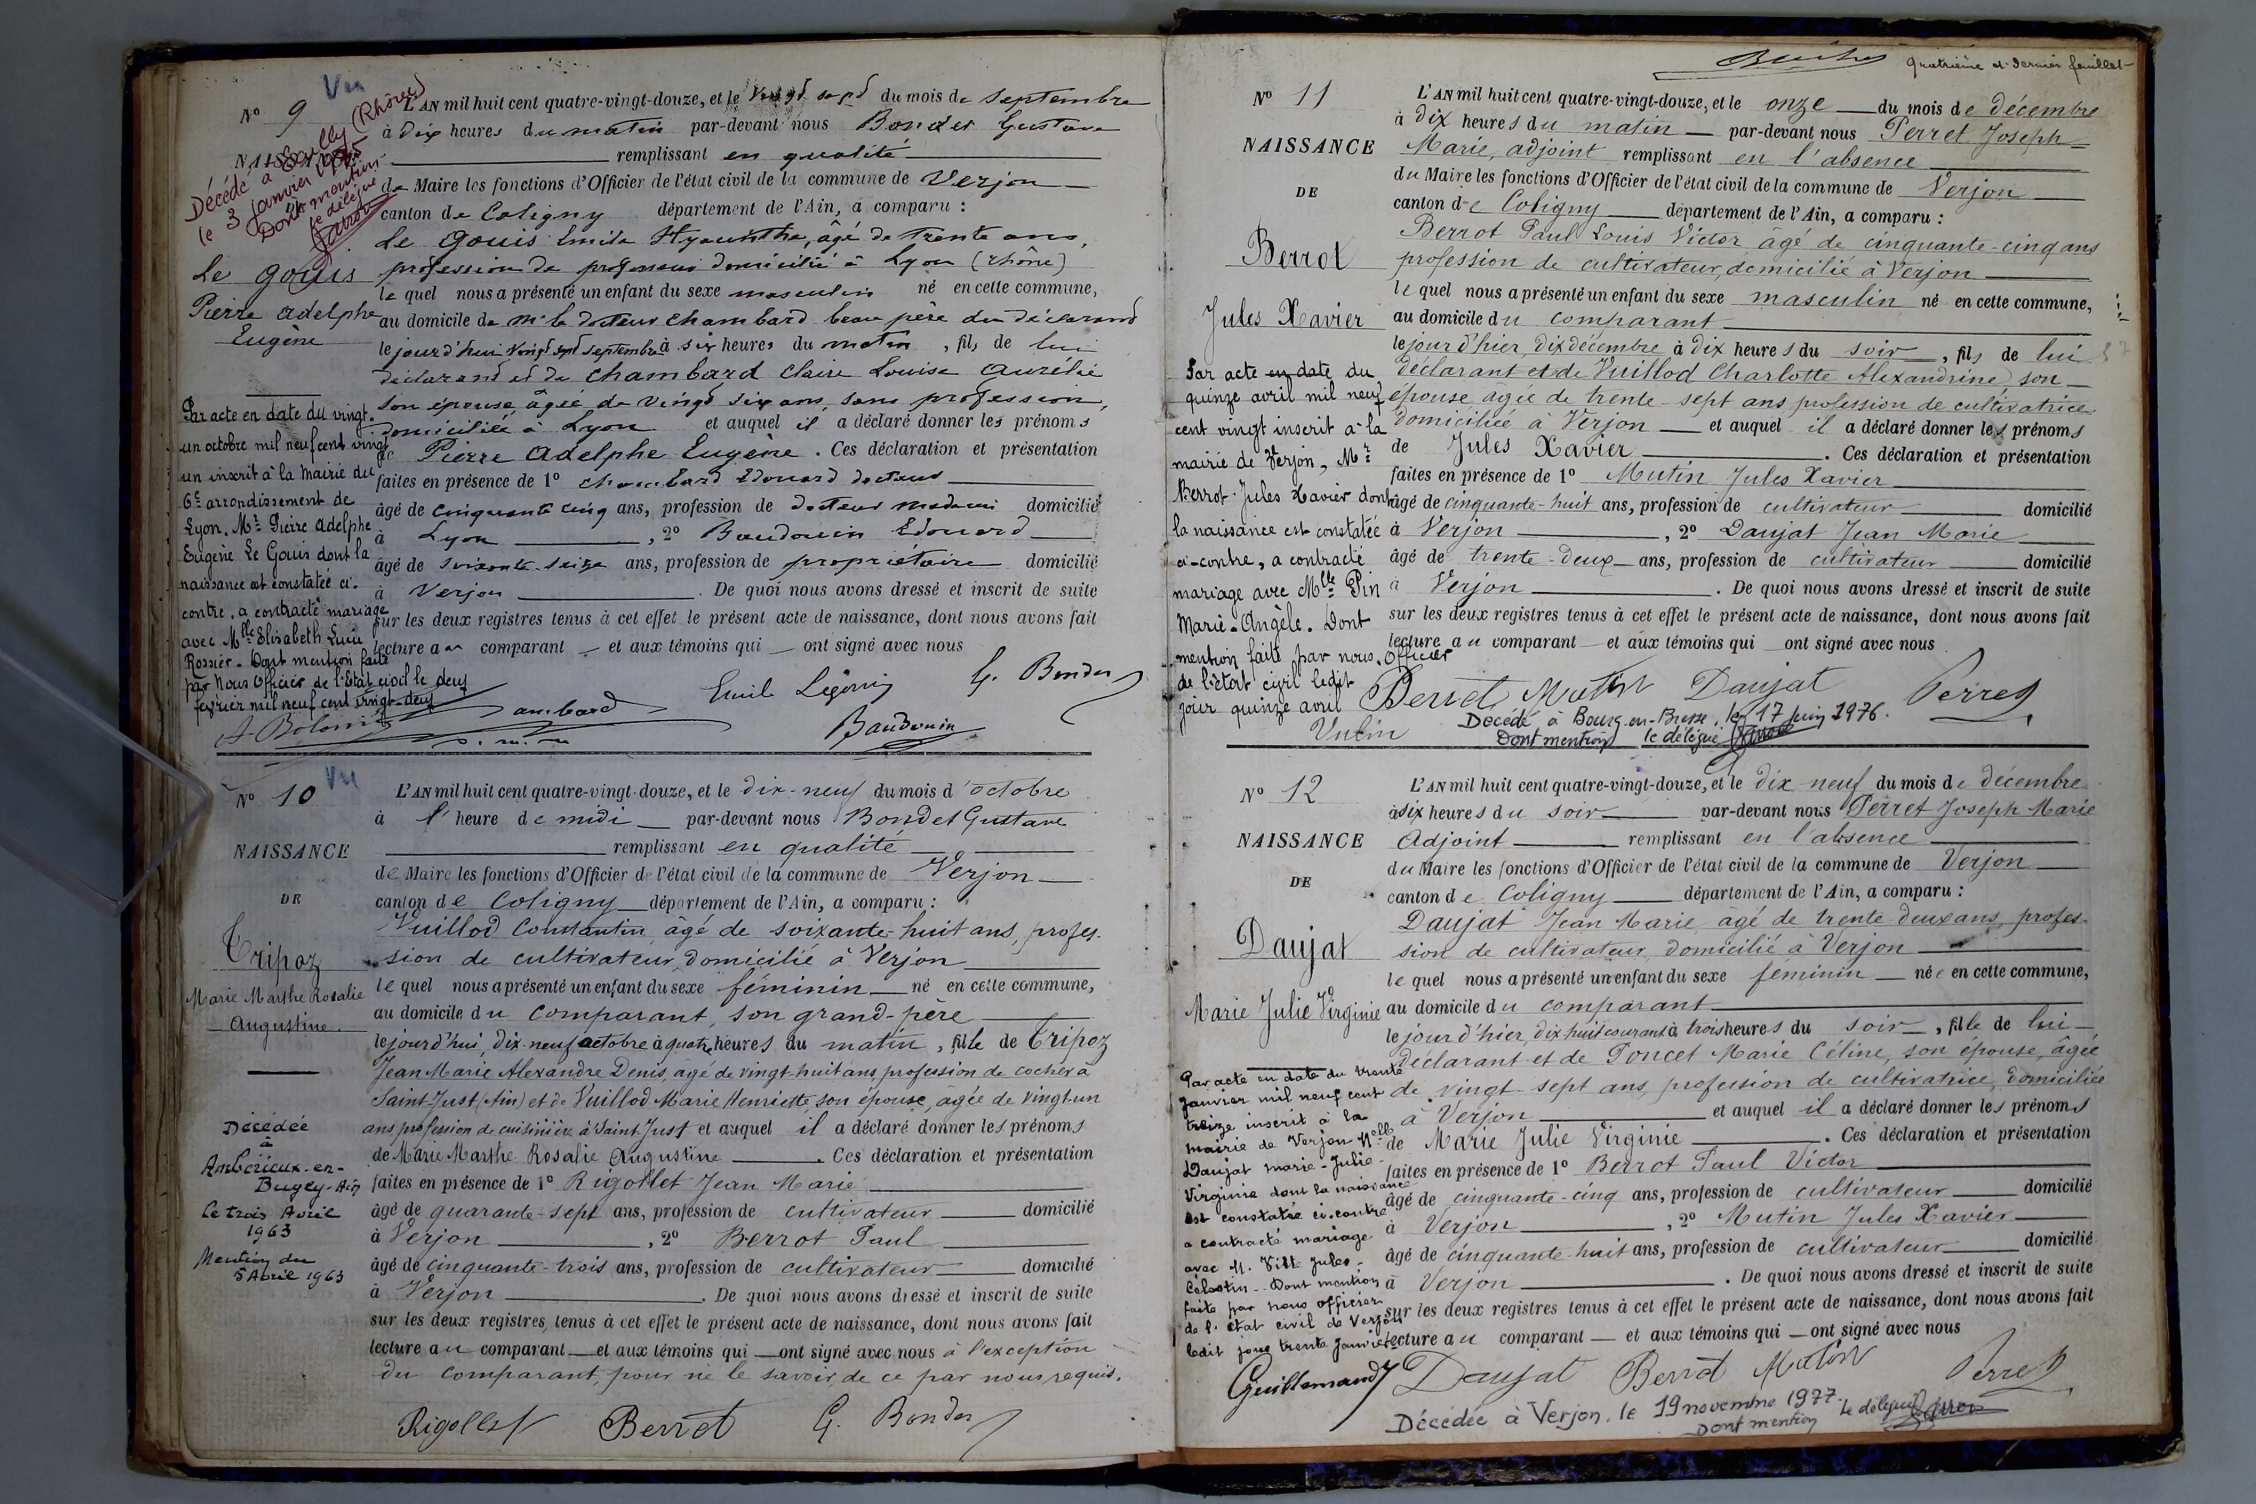 Vu
N° 9
Décédé à Ecully (Rhône)
le 3 janvier
Dont mention
le délégué
NAISSANCE
DE
Le Gouis
Pierre Adelphe
Eugène
L'AN mil huit cent quatre-vingt-douze, et le vingt sept du mois de septembre
à dix heures du matin par-devant nous Bondet Gustave
remplissant en qualité
de Maire les fonctions d'Officier de l'état civil de la commune de Verjon
canton de Coligny département de l'Ain, a comparu :
Le Gouis Emile Hyacinthe, âgé de trente ans,
profession de professeur domicilié à Lyon (Rhône)
lequel nous a présenté un enfant du sexe masculin né en cette commune,
au domicile de Mr le docteur Chambard beau père du déclarant
le jour d'hui vingt sept septembre à six heures du matin, fils de lui
déclarant et de Chambard Claire Louise Aurélie
son épouse âgée de vingt six ans, sans profession,
domiciliée à Lyon et auquel il a déclaré donner les prénoms
de Pierre Adelphe Eugène. Ces déclaration et présentation
faites en présence de 1° Chambard Edouard docteur
âgé de cinquante cinq ans, profession de docteur médecin domicilié
à Lyon, 2° Baudouin Edouard
âgé de soixante-seize ans, profession de propriétaire domicilié
à Verjon. De quoi nous avons dressé et inscrit de suite
sur les deux registres tenus à cet effet le présent acte de naissance, dont nous avons fait
lecture au comparant et aux témoins qui ont signé avec nous
Par acte en date du vingt-
un octobre mil neuf cent vingt
un inscrit à la Mairie du
6e arrondissement de
Lyon. Mr Pierre Adelphe
Eugène Le Gouis dont la
naissance est constatée ci-
contre, a contracté mariage
avec Mlle Elisabeth Lucie
Rossier. Dont mention faite
par Nous Officier de l'Etat civil le deux
février mil neuf cent vingt-deux
Emile Legouis G. Bondet
Baudouin
Vu
N° 10
NAISSANCE
DE
Tripoz
Marie Marthe Rosalie
Augustine.
L'AN mil huit cent quatre-vingt-douze, et le dix-neuf du mois d'octobre
à l'heure de midi par-devant nous Bondet Gustave
remplissant en qualité
de Maire les fonctions d'Officier de l'état civil de la commune de Verjon
canton de Coligny département de l'Ain, a comparu :
Vuillod Constantin, âgé de soixante-huit ans, profes-
sion de cultivateur, domicilié à Verjon
lequel nous a présenté un enfant du sexe féminin né en cette commune,
au domicile du comparant, son grand-père
le jour d'hui, dix-neuf octobre à quatre heures du matin, fille de Tripoz
Jean Marie Alexandre Denis, âgé de vingt-huit ans, profession de cocher à
Saint-Just (Ain) et de Vuillod Marie Henriette, son épouse, âgée de vingt-un
ans profession de cuisinière à Saint Just et auquel il a déclaré donner les prénoms
de Marie Marthe Rosalie Augustine. Ces déclaration et présentation
faites en présence de 1° Rigollet Jean Marie
âgé de quarante-sept ans, profession de cultivateur domicilié
à Verjon, 2° Berrot Paul
âgé de cinquante-trois ans, profession de cultivateur domicilié
à Verjon. De quoi nous avons dressé et inscrit de suite
sur les deux registres tenus à cet effet le présent acte de naissance, dont nous avons fait
lecture au comparant et aux témoins qui ont signé avec nous à l'exception
du comparant, pour ne le savoir, de ce par nous requis.
Décédée
à
Ambérieux-en-
Bugey-Ain
Le trois Avril
1963
Mention du
5 Avril 1963
Rigollet Berrot G. Bondet
quatrième et dernier feuillet
N° 11
NAISSANCE
DE
Berrot
Jules Xavier
L'AN mil huit cent quatre-vingt-douze, et le onze du mois de décembre
à dix heures du matin par-devant nous Perret Joseph-
Marie, adjoint remplissant en l'absence
du Maire les fonctions d'Officier de l'état civil de la commune de Verjon
canton de Coligny département de l'Ain, a comparu :
Berrot Paul Louis Victor âgé de cinquante-cinq ans
profession de cultivateur, domicilié à Verjon
lequel nous a présenté un enfant du sexe masculin né en cette commune,
au domicile du comparant
le jour d'hier, dix décembre à dix heures du soir, fils de lui
déclarant et de Vuillod Charlotte Alexandrine, son
épouse âgée de trente-sept ans profession de cultivatrice
domiciliée à Verjon et auquel il a déclaré donner les prénoms
de Jules Xavier. Ces déclaration et présentation
faites en présence de 1° Mutin Jules Xavier
âgé de cinquante-huit ans, profession de cultivateur domicilié
à Verjon, 2° Daujat Jean Marie
âgé de trente-deux ans, profession de cultivateur domicilié
à Verjon. De quoi nous avons dressé et inscrit de suite
sur les deux registres tenus à cet effet le présent acte de naissance, dont nous avons fait
lecture au comparant et aux témoins qui ont signé avec nous
Par acte en date du
quinze avril mil neuf
cent vingt inscrit à la
mairie de Verjon, Mr
Berrot Jules Xavier dont
la naissance est constatée
ci-contre, a contracté
mariage avec Mlle Pin
Marie-Angèle. Dont
mention faite par nous, Officier
de l'état civil ledit
jour quinze avril
Berrot Mutin Daujat Perret
Décédé à Bourg-en-Bresse, le 17 juin 1976.
Dont mention le délégué
N° 12
NAISSANCE
DE
Daujat
Marie Julie Virginie
L'AN mil huit cent quatre-vingt-douze, et le dix-neuf du mois de décembre
à six heures du soir par-devant nous Perret Joseph Marie
Adjoint remplissant en l'absence
du Maire les fonctions d'Officier de l'état civil de la commune de Verjon
canton de Coligny département de l'Ain, a comparu :
Daujat Jean Marie, âgé de trente-deux ans, profes-
sion de cultivateur, domicilié à Verjon
lequel nous a présenté un enfant du sexe féminin née en cette commune,
au domicile du comparant
le jour d'hier, dix huit courant à trois heures du soir, fille de lui
déclarant et de Poncet Marie Céline, son épouse, âgée
de vingt-sept ans, profession de cultivatrice, domiciliée
à Verjon et auquel il a déclaré donner les prénoms
de Marie Julie Virginie. Ces déclaration et présentation
faites en présence de 1° Berrot Paul Victor
âgé de cinquante-cinq ans, profession de cultivateur domicilié
à Verjon, 2° Mutin Jules Xavier
âgé de cinquante-huit ans, profession de cultivateur domicilié
à Verjon. De quoi nous avons dressé et inscrit de suite
sur les deux registres tenus à cet effet le présent acte de naissance, dont nous avons fait
lecture au comparant et aux témoins qui ont signé avec nous
Par acte en date du trente
Janvier mil neuf cent
treize inscrit à la
mairie de Verjon Melle
Daujat Marie-Julie-
Virginie dont la naissance
est constatée ci-contre
a contracté mariage
avec M. Jules-
Célestin. Dont mention
faite par nous officier
de l'état civil de Verjon
ledit jour trente Janvier
Guillemaud Daujat Berrot Mutin Perret
Décédée à Verjon, le 19 novembre 1977.
Dont mention Le délégué